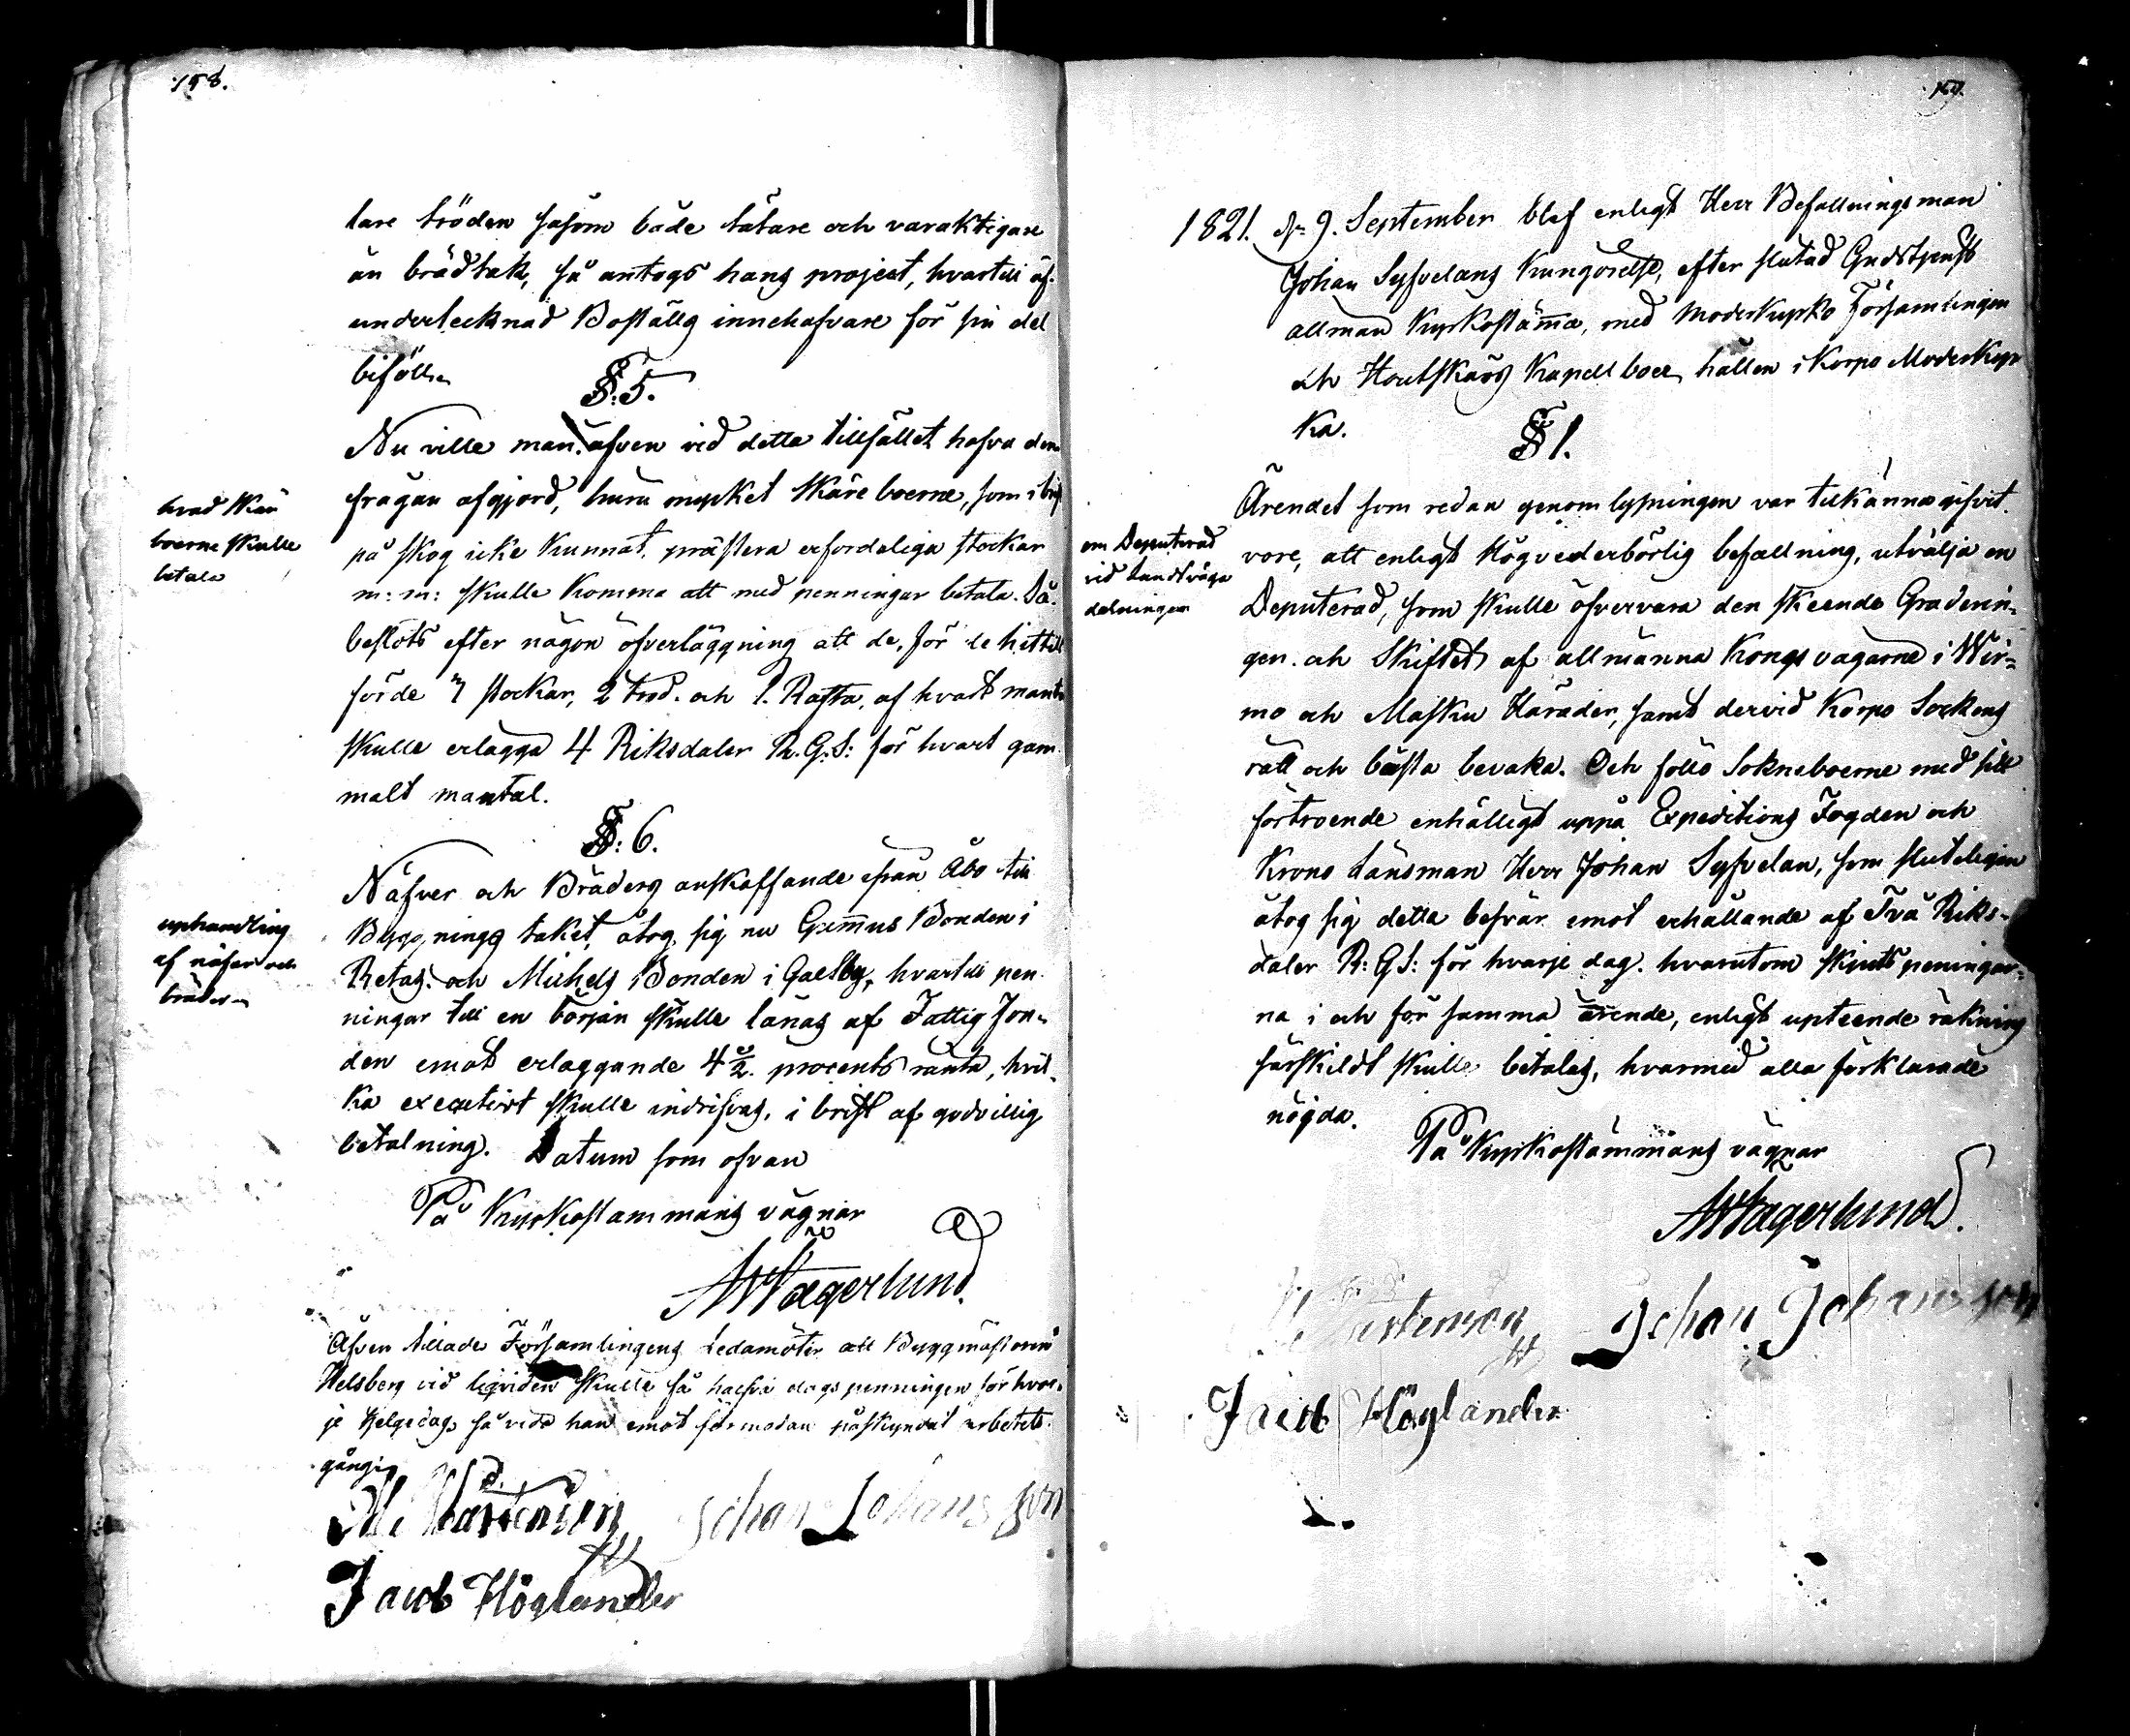 158.
tare tröden såsom både tätare och varaktigare
än brädtak, så antogs hans project, hvartill äf-
undertecknad Boställs innehafvare för sin del
biföll.
§. 5.
Nu ville man äfven vid detta tillfället hafva den
frågan afgjord, huru mycket Skäreboerne, som i brist
på skog icke kunnat præstera erforderliga stockar
m: m: skulle komma att med penningar betala. Då
beslöts efter någon öfverläggning att de, för de hittill
förde 7 stockar, 2 trod. och 1. Rafta, af hvart mantal
skulle erlägga 4 Riksdaler R.G.S: för hvart gam-
malt mantal.
hvad Skär
boerne skulle
betala
§. 6.
Näfver och Bräders anskaffande ifrån Åbo till
Byggnings taket, åtog sig nu Gummus Bonden i
Retais och Michels Bonden i Galtby, hvartill pen-
ningar till en början skulle lånas af Fattig Fon-
den emot erläggande 4 1/2 procents ränta, hvil-
ka executivt skulle indrifvas, i brist af godvillig
betalning. Datum som ofvan
uphandling
af näfver och
bräder
På Kyrkostämmans vägnar
AWägerlund.
Äfven tillade Församlingens Ledamöter att Byggmästaren
Helsberg vid liqviden skulle få halfva dagspenningen för hvar-
je helgedag, så vida han emot förmodan påskyndat arbetets
gång.
M. Mårtenson Johan Johansson
Jacob Höglander
159.
1821. d. 9. September blef enligt Herr Befallningsman
Johan Sylvelans kungörelse, efter slutad Gudstjenst
allmän Kyrkostämma, med Moderkyrko Församlingen
och Houtskärs Kapellboer, hållen i Korpo Moderkyr
ka.
§ 1.
Ärendet som redan genom lysningen var tilkänna gifvit
vore, att enligt Högvederbörlig befallning, utvälja en
Deputerad, som skulle öfvervara den skeende Graderin-
gen och Skiftet af allmänna Kongsvägarne i Wir-
mo och Masku Härader, samt dervid Korpo Sockens
rätt och bästa bevaka. Och föllo Sokneboerne med sitt
förtroende enhälligt uppå Expeditions Fogden och
Krono Länsman Herr Johan Sylvelan, som sluteligen
åtog sig detta besvär emot erhållande af Två Riks-
daler R: G S: för hvarje dag. hvarutom skjutspeningar-
na i och för samma ärende, enligt upteende räkning
särskildt skulle betalas, hvarmed alla förklarade
nögda.
om Deputerad
vid Landsvägs
delningen
På Kyrkostämmans vägnar
AWägerlund.
M. Mårtenson Johan Johansson
Jacob Höglander